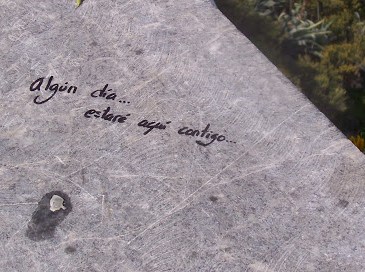 Algún día...
estaré aquí contigo...